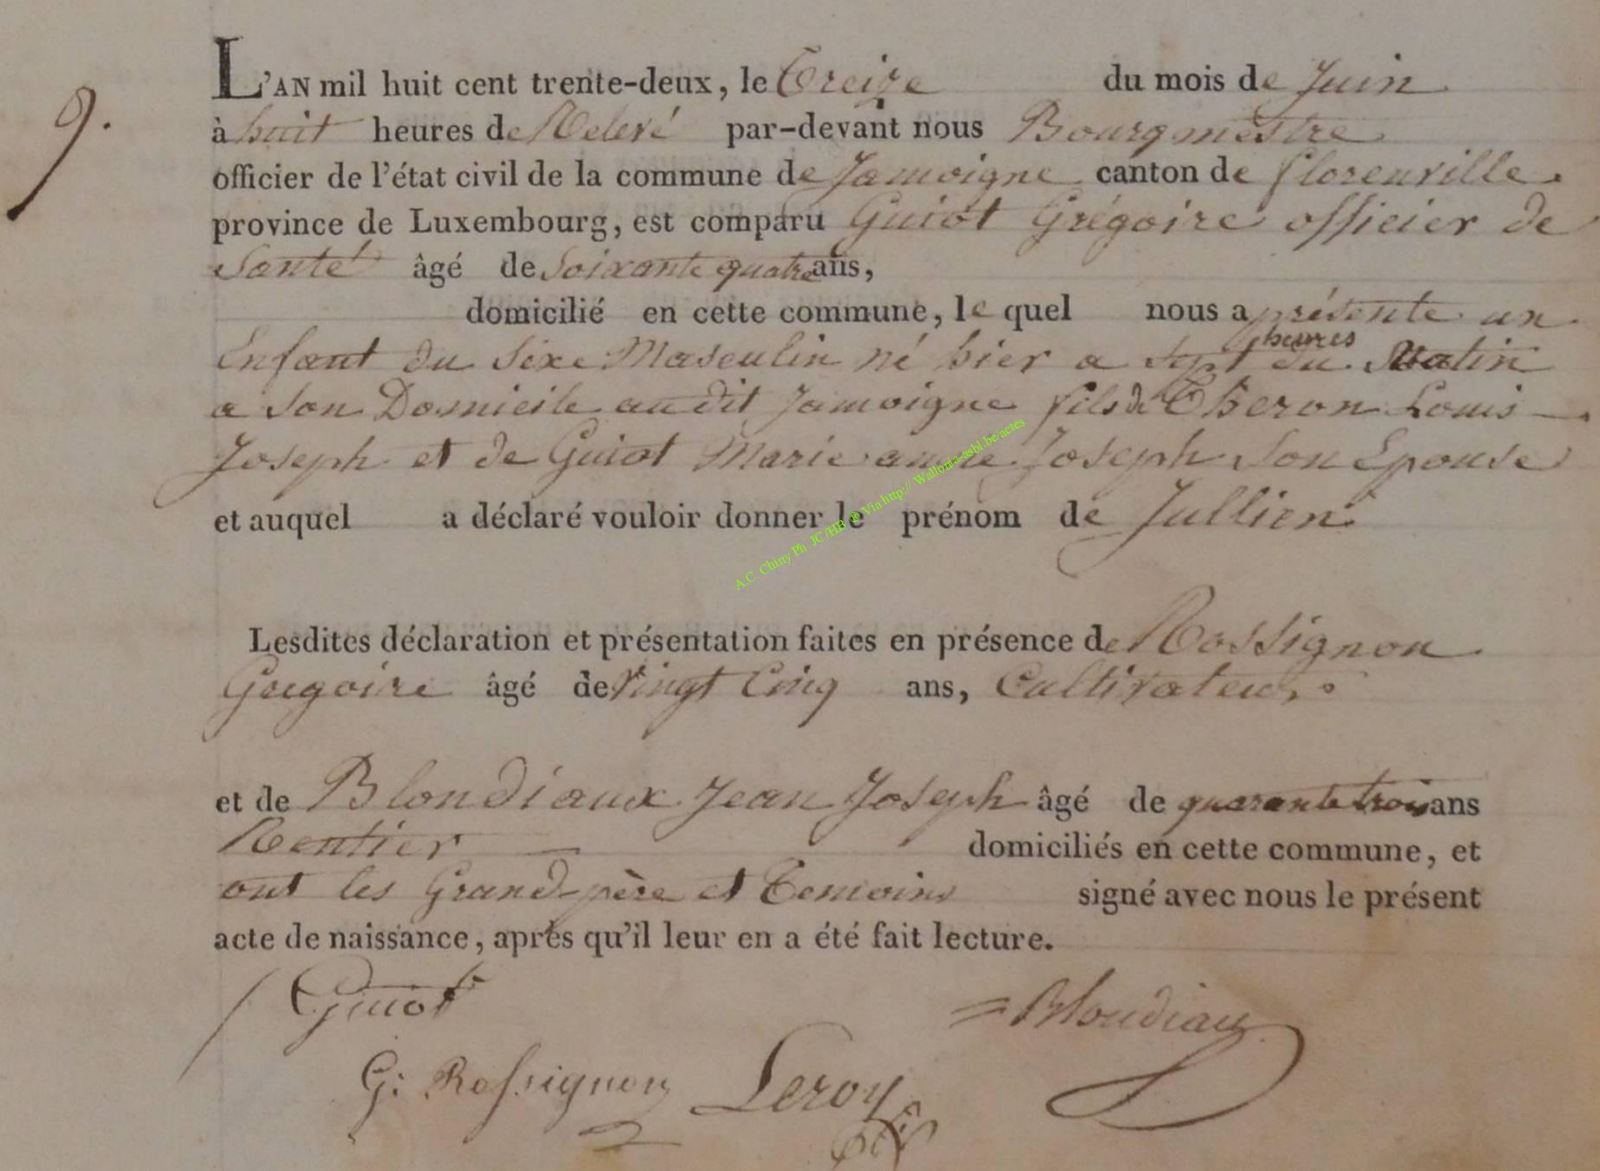 9.
L'AN mil huit cent trente-deux, le Treize du mois de Juin
à huit heures de Relevé par-devant nous Bourgmestre
officier de l'état civil de la commune de Jamoigne canton de florenville
province de Luxembourg, est comparu Guiot Grégoire officier de
Santé âgé de Soixante quatre ans,
domicilié en cette commune, le quel nous a présenté un
Enfant du Sexe Masculin né hier a Sept heures du Matin
a Son Domicile audit Jamoigne fils de Theron Louis
Joseph et de Guiot Marie anne Joseph Son Epouse
et auquel a déclaré vouloir donner le prénom de Jullien
A.C. Chiny Ph. JC/HB @ Via http:// Wallonia-asbl.be/actes
Lesdites déclaration et présentation faites en présence de Rossignon
Gregoire âgé de Vingt Cinq ans, Cultivateur
et de Blondiaux Jean Joseph âgé de quarante trois ans
Rentier domiciliés en cette commune, et
ont les Grand-père et Temoins signé avec nous le présent
acte de naissance, après qu'il leur en a été fait lecture.
Guiot
Blondiau
G: Rossignon Leroy